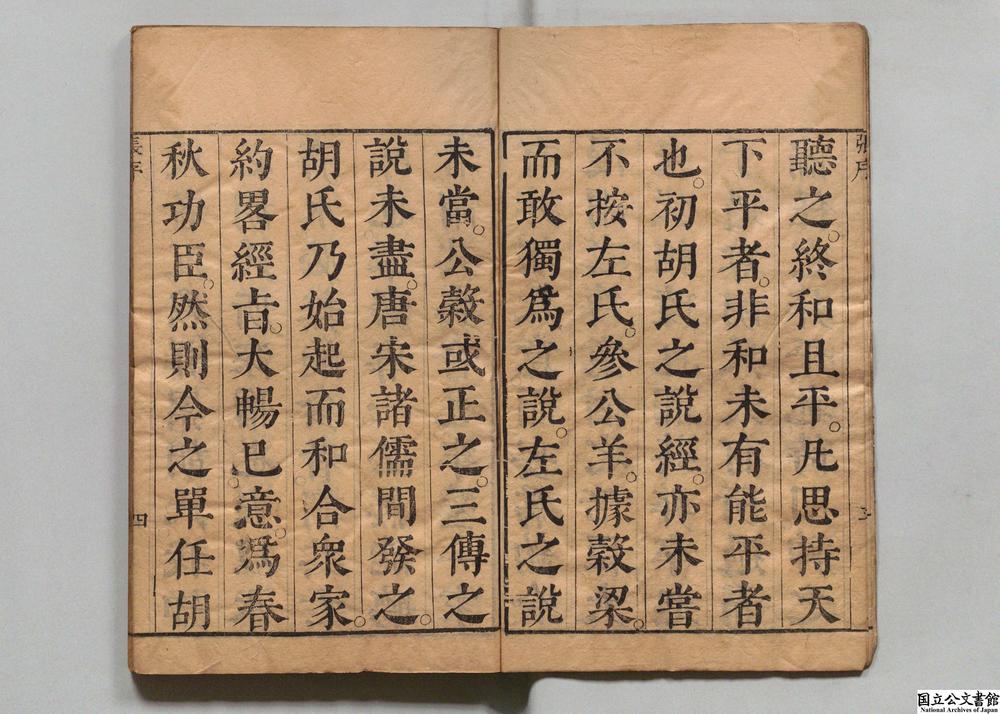 張序
聽之。終和且平。凡思持天
下平者。非和未有能平者
也。初胡氏之說經。亦未嘗
不按左氏。參公羊。據穀梁。
而敢獨爲之說。左氏之說
未當。公穀或正之。三傳之
說未盡。唐宋諸儒間發之。
胡氏乃始起而和合衆家。
約畧經㫖。大暢已意。爲春
秋功臣。然則今之單任胡
四
国立公文書館
National Archives of Japan